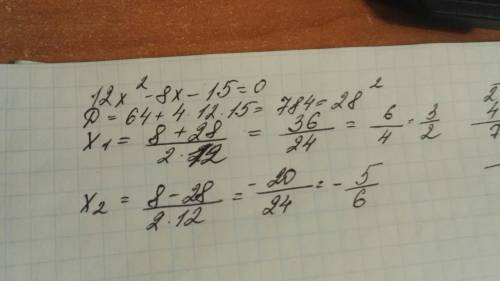 12x² - 8x - 15 = 0
D = 64 + 4 · 12 · 15 = 784 = 28²
x₁ = (8 + 28)/(2 · 12) = 36/24 = 6/4 = 3/2
x₂ = (8 - 28)/(2 · 12) = -20/24 = -5/6
2
4
7